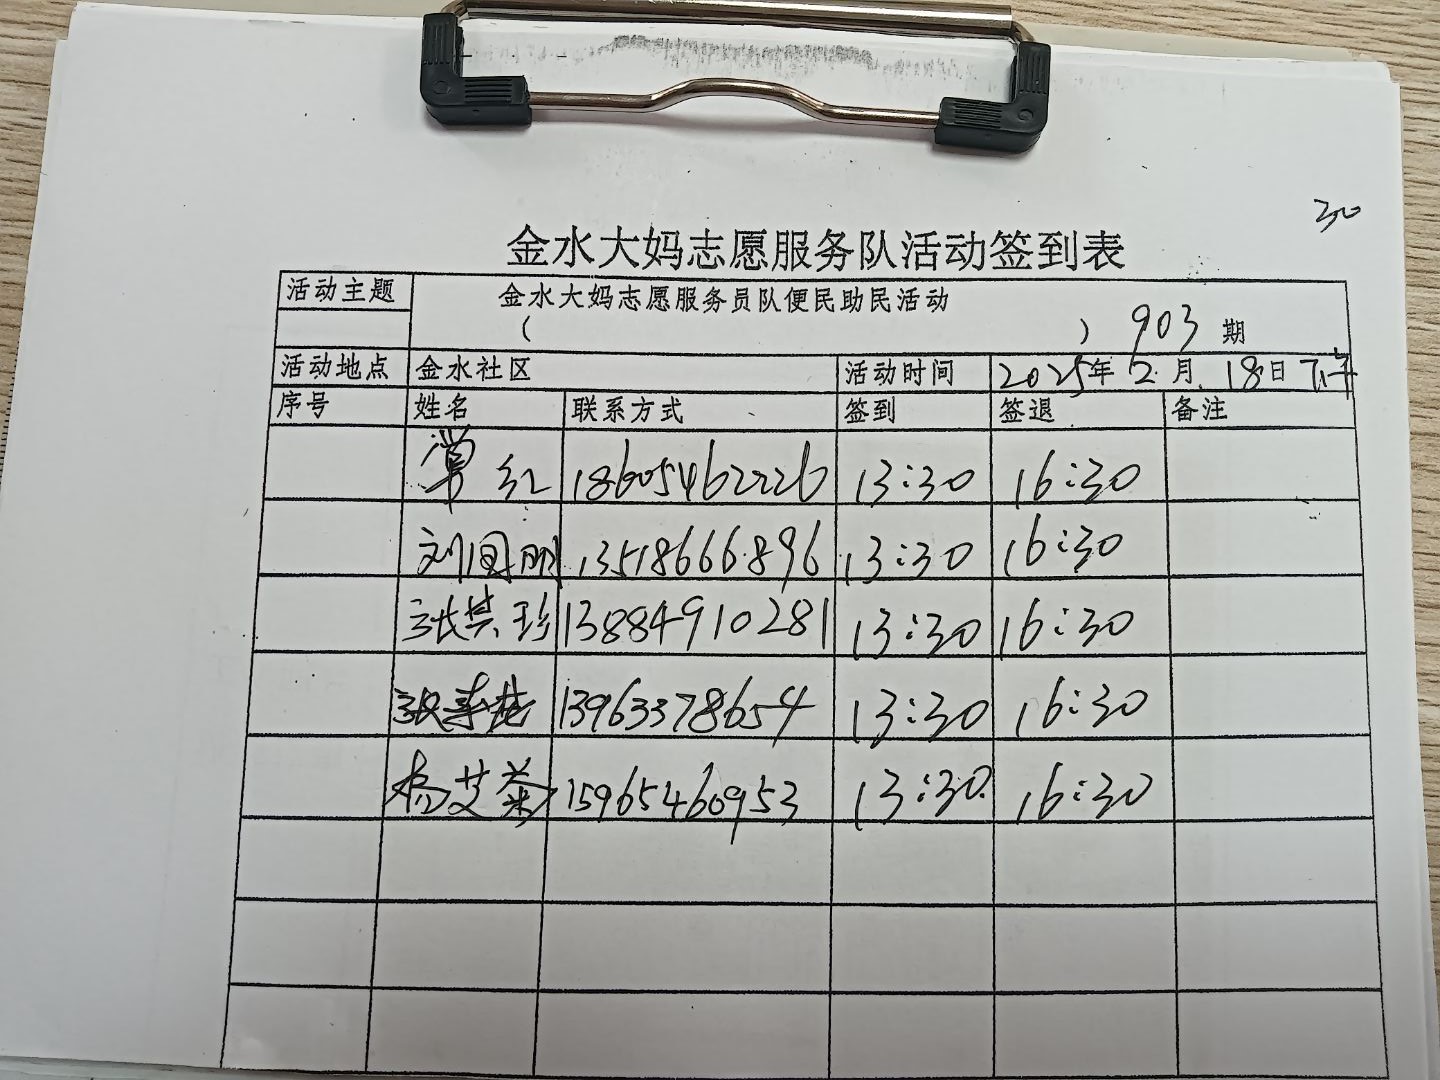 30
金水大妈志愿服务队活动签到表
活动主题 金水大妈志愿服务员队便民助民活动
( ) 903 期
活动地点 金水社区 活动时间 2025年 2 月 18日 下午
序号 姓名 联系方式 签到 签退 备注
红 18605462226 13:30 16:30
刘国朋 13518666896 13:30 16:30
张其珍 13884910281 13:30 16:30
张 13963378654 13:30 16:30
杨艾菊 15965460953 13:30 16:30